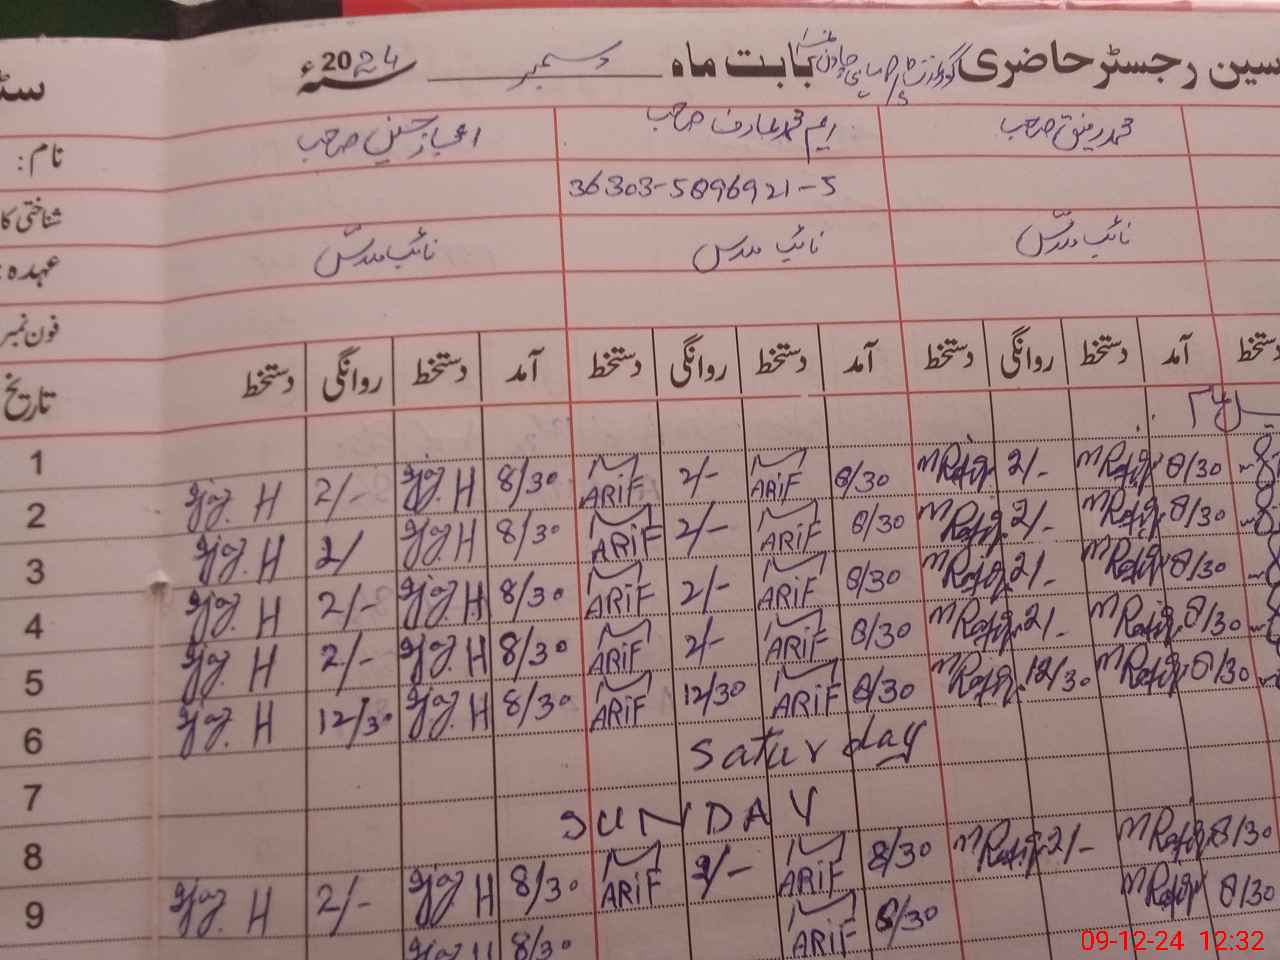 سین رجسٹر حاضری بابت ماہ دسمبر 2024 سنہء
نام: محمد رفیق صاحب ایم محمد عارف صاحب اعجاز حسین صاحب
شناختی کا 36303-5896921-5
عہدہ: نائب مدرس نائب مدرس نائب مدرس
فون نمبر
تاریخ دستخط آمد دستخط روانگی دستخط آمد دستخط روانگی دستخط آمد دستخط روانگی دستخط
1
2 M Rafiq 8/30 M Rafiq 2/- ARiF 8/30 ARiF 2/- Ijaz. H 8/30 Ijaz. H 2/-
3 M Rafiq 8/30 M Rafiq 2/- ARiF 8/30 ARiF 2/- Ijaz H 8/30 Ijaz. H 2/
4 M Rafiq 8/30 M Rafiq 2/- ARiF 8/30 ARiF 2/- Ijaz H 8/30 Ijaz. H 2/-
5 M Rafiq 8/30 M Rafiq 2/- ARiF 8/30 ARiF 2/- Ijaz. H 8/30 Ijaz. H 2/-
6 M Rafiq 8/30 M Rafiq 12/30 ARiF 8/30 ARiF 12/30 Ijaz. H 8/30 Ijaz. H 12/30
7 Saturday
8 SUNDAY
9 M Rafiq 8/30 M Rafiq 2/- ARiF 8/30 ARiF 2/- Ijaz H 8/30 Ijaz. H 2/-
M Rafiq 8/30 ARiF 8/30 Ijaz H 8/30
09-12-24 12:32